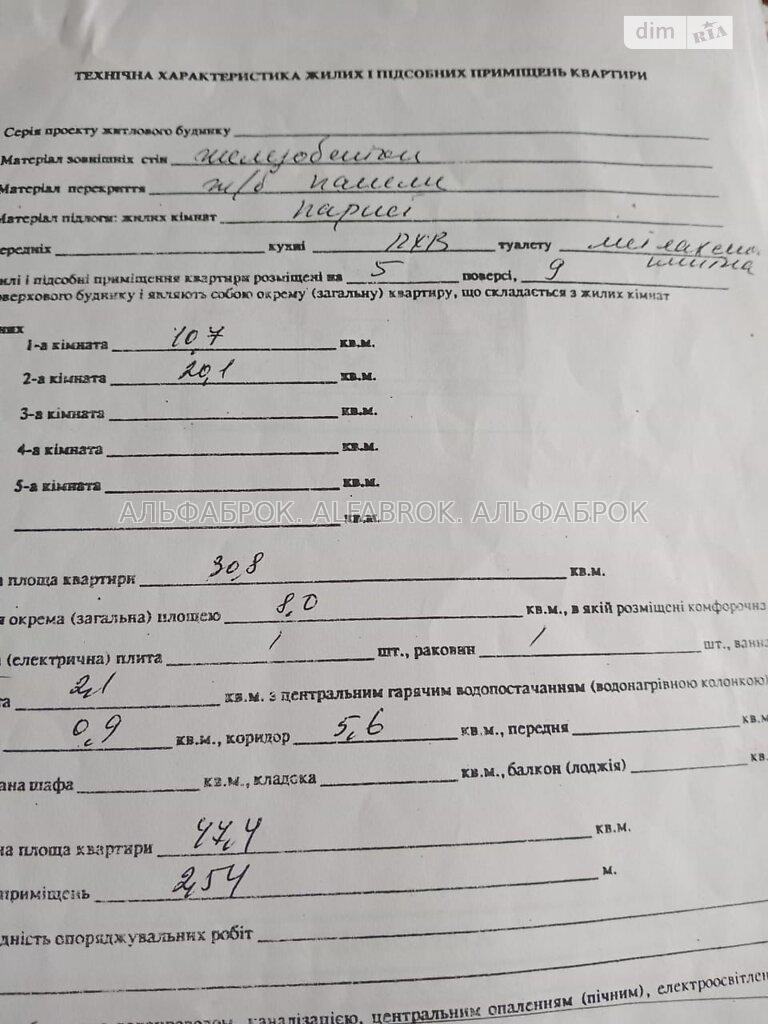 dim RIA
ТЕХНІЧНА ХАРАКТЕРИСТИКА ЖИЛИХ І ПІДСОБНИХ ПРИМІЩЕНЬ КВАРТИРИ
Серія проекту житлового будинку
Матеріал зовнішніх стін железобетон
Матеріал перекриття ж/б панели
Матеріал підлоги: жилих кімнат паркет
ередніх кухні ПХВ туалету метлахська
плитка
илі і підсобні приміщення квартири розміщені на 5 поверсі, 9
оверхового будинку і являють собою окрему (загальну) квартиру, що складається з жилих кімнат
них
1-а кімната 10,7 кв.м.
2-а кімната 20,1 кв.м.
3-а кімната кв.м.
4-а кімната кв.м.
5-а кімната кв.м.
кв.м.
АЛЬФАБРОК. ALFABROK. АЛЬФАБРОК
а площа квартири 30,8 кв.м.
я окрема (загальна) площею 8,0 кв.м., в якій розміщені комфорочна
(електрична) плита 1 шт., раковин 1 шт., ванна
та 2,1 кв.м. з центральним гарячим водопостачанням (водонагрівною колонкою)
0,9 кв.м., коридор 5,6 кв.м., передня кв.м
ана шафа кв.м., кладова кв.м., балкон (лоджія) кв.
на площа квартири 47,4 кв.м.
приміщень 2,54 м.
дність опоряджувальних робіт
водопроводом, каналізацією, центральним опаленням (пічним), електроосвітлен